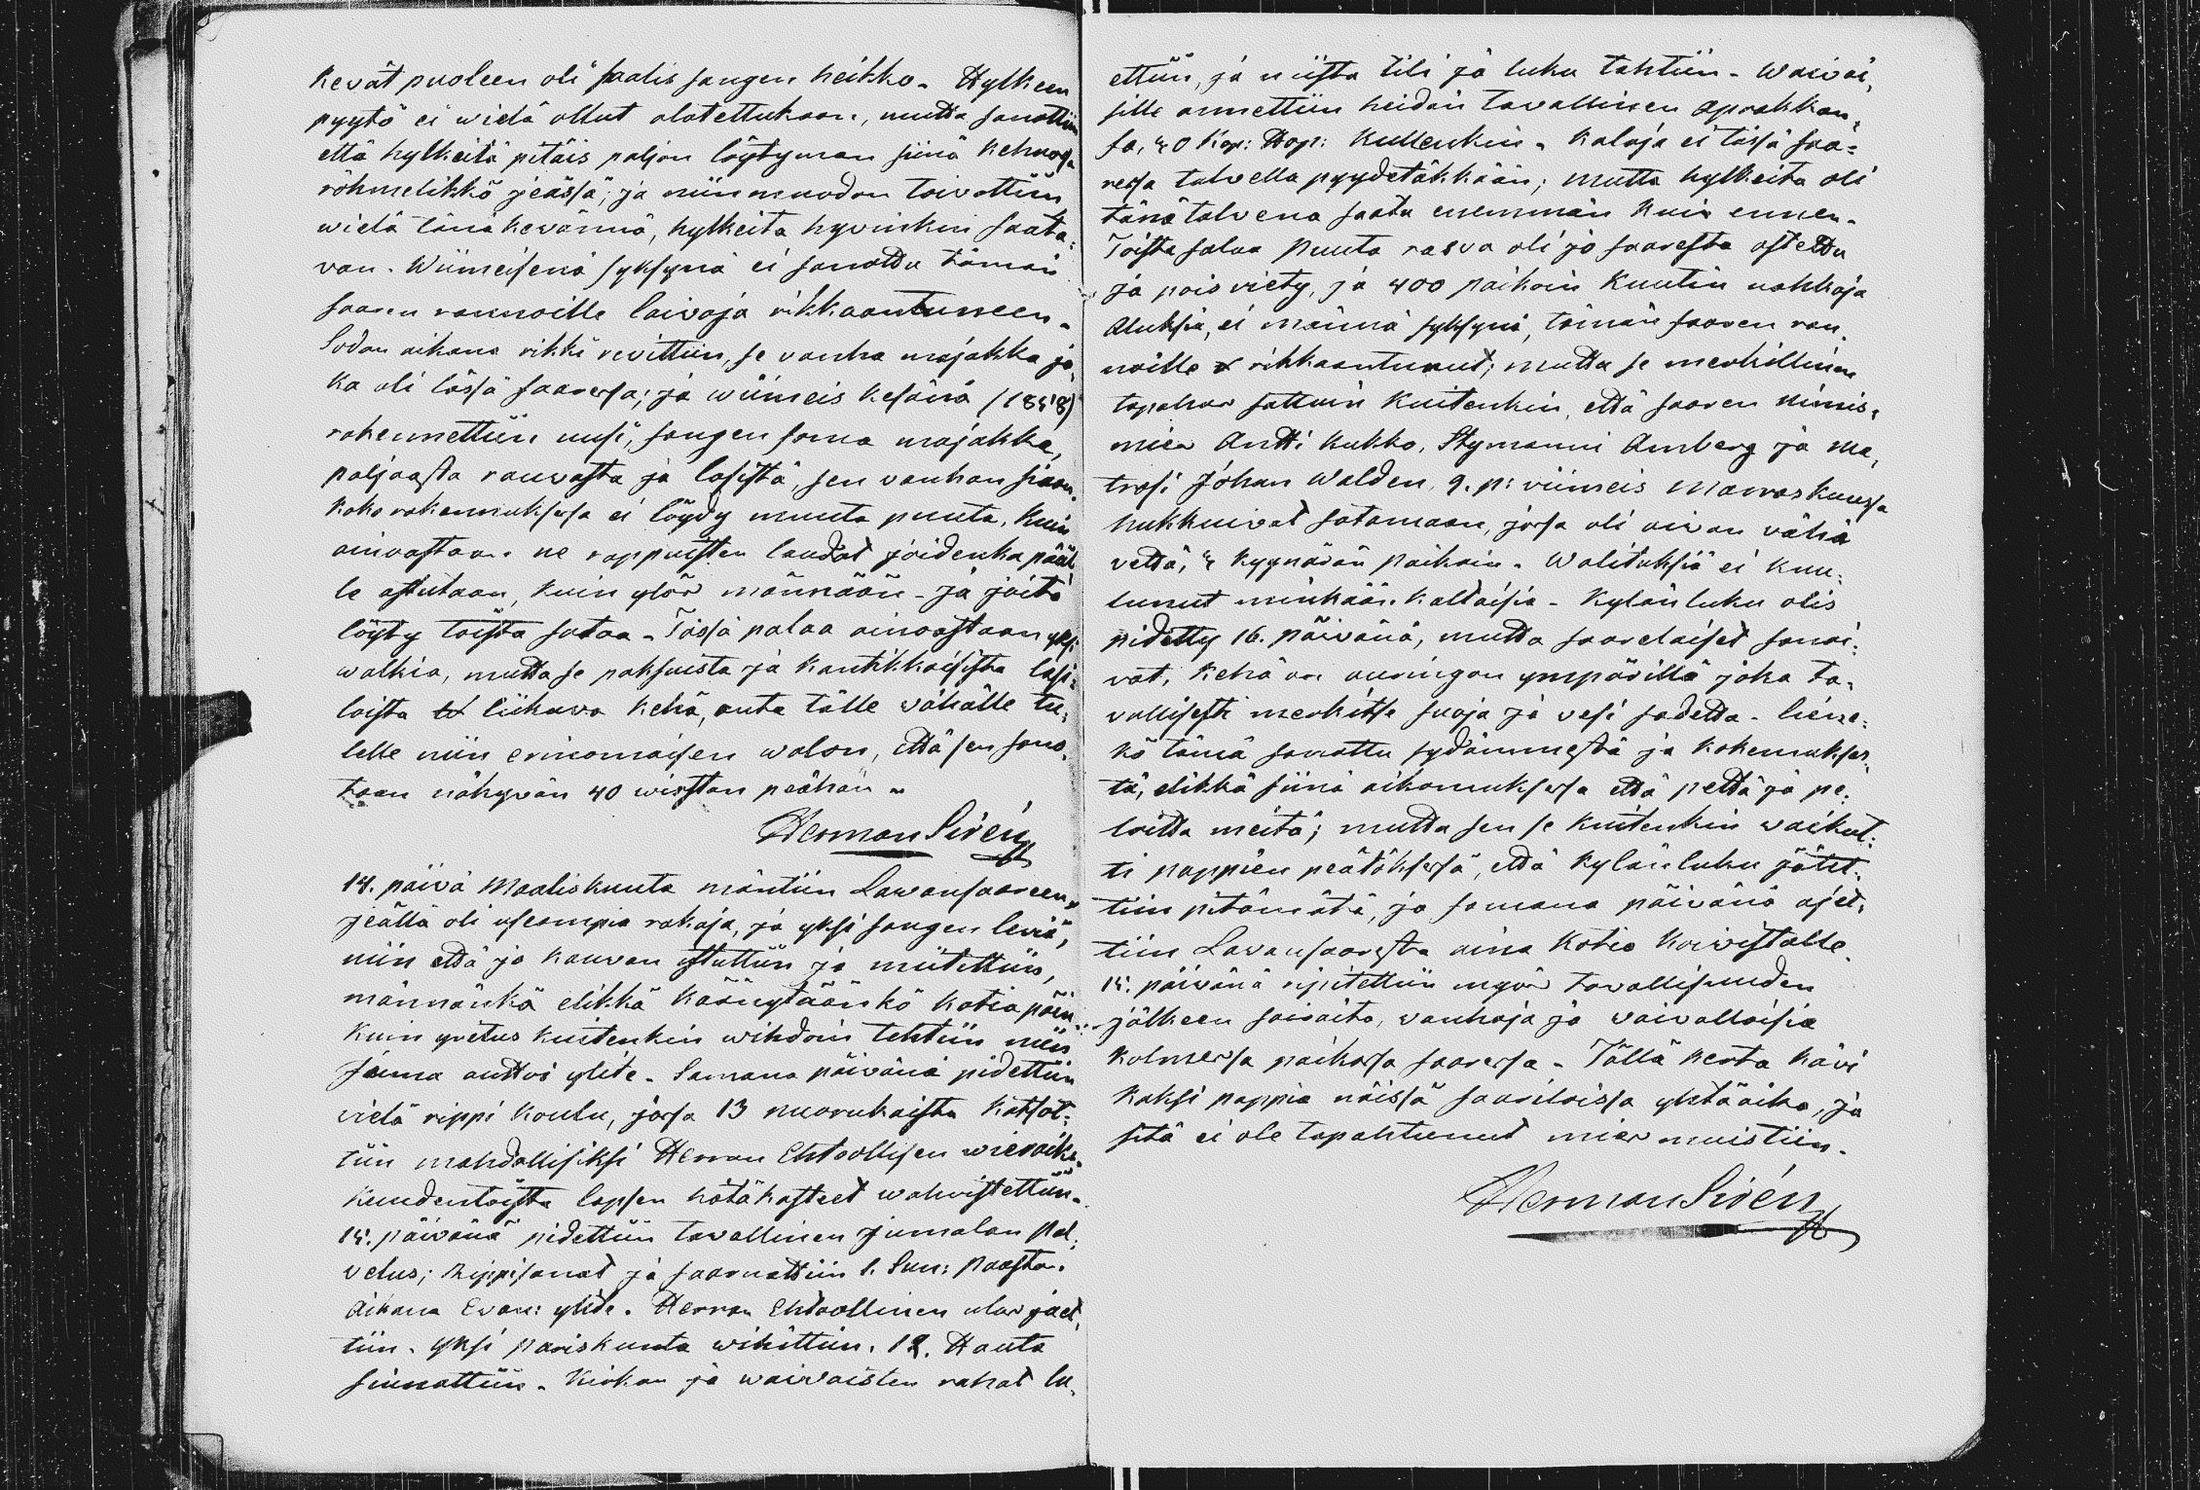 kevät puoleen oli saalis sangen heikko. Hylkeen
pyytö ei wielä ollut alotettukaan, mutta sanottiin
että hylkeitä pitäis paljon löytymän siinä
röhmelikkö jeässä; ja niinmuodon toivottiin
wielä tänä kevännä, hylkeitä hyvinkin saata-
van. Wiimeisenä syksynä ei sanottu tämän
saaren rannoille laivoja rikkaantuneen.
Sodan aikana rikki revittiin, se vanha majakka jo-
ka oli tässä saaressa; ja wiimeis kesänä (1858)
rakennettiin uusi, sangen soma majakka,
paljaasta rauvasta ja lasista, sen vanhan siaan.
Koko rakennuksessa ei löydy muuta puuta, kuin
ainoastaan ne rappuisten laudat joidenka pääl-
le astutaan, kuin ylös männään - ja joita
löyty toista sataa. Tässä palaa ainoastaan yksi
walkia, mutta se paksuista ja kantikkaisista lasi-
loista liikuva kehä, anta tälle vähälle tu-
lelle niin erinomaisen walon, että sen sano-
taan näkyvän 40 wirstan päähän.
Herman Sirén
14. päivä Maaliskuuta mäntiin Lavansaareen,
jeällä oli useampia rakoja, ja yksi sangen leviä,
niin että jo kauvan istuttiin ja miitettiin,
männänkö elikkä käännytäänkö kotia päin
kuin yretus kuitenkin wihdoin tehtiin niin
Jumala auttoi ylite. Samana päivänä pidettiin
vielä rippi koulu, jossa 13 nuorukaista katsot-
tiin mahdollisiksi Herran Ehtoollisen wieraiksi
Kuudentoista lapsen hätäkasteet wahvistettiin.
15. päivänä pidettiin tavallinen Jumalan pal-
velus; Rippisanat ja saarnattiin 1. Sun: Paaston
aikana Evan: ylite. Herran Ehtoollinen ulos jaet-
tiin. Yksi pariskunta wihittiin. 12. Hauta
siunattiin. Kirkon ja waivaisten rahat lu-
ettiin, ja niistä tili ja luku tehtiin. Waivai-
sille annettiin heidän tavallinen aprakkan-
sa, 40 Kop: Hop: kullenkin. Kaloja ei tässä saa-
ressa talvella pyydetäkkään; mutta hylkeitä oli
tänä talvena saatu enemmän kuin ennen.
Toista sataa puuta rasva oli jo saaresta ostettu
ja pois viety, ja 400 paikoin kuutin nahkoja
Aluksia, ei männä syksynä, tämän saaren ran-
noille rikkaantunut; mutta se merkillinen
tapahus sattuin kuitenkin, että saaren nimis-
mies Antti Kukko, Stymanni Amberg ja Ma-
trosi Johan Walden, 9. p: viimeis Marraskuussa
hukkuivat satamaan, jossa oli aivan vähä
vettä, 4 kyynärän paikoin. Walituksia ei kuu-
lunut minkään kaltaisia. Kylänluku olis
pidetty 16. päivänä, mutta saarelaiset sanoi-
vat, kehä on auringon ympärillä joka ta-
vallisesti merkitse suoja ja vesi sadetta. Liene-
kö tämä sanottu sydämmestä ja kokemukses-
tä, elikkä siinä aikomuksessa että pettä ja pe-
loitta meitä; mutta sen se kuitenkin waikut-
ti pappien päätöksessä, että kylänluku jätet-
tiin pitämätä, ja samana päivänä ajet-
tiin Lavansaaresta aina kotia Koivistolle.
15. päivänä ripitettiin myös tavallisuuden
jälkeen sairaita, vanhoja ja vaivallaisia
kolmessa paikassa saaressa. Tällä kerta kävi
kaksi pappia näissä saariloissa yhtäaika, ja
sitä ei ole tapahtunut mies muistiin.
Herman Sirén